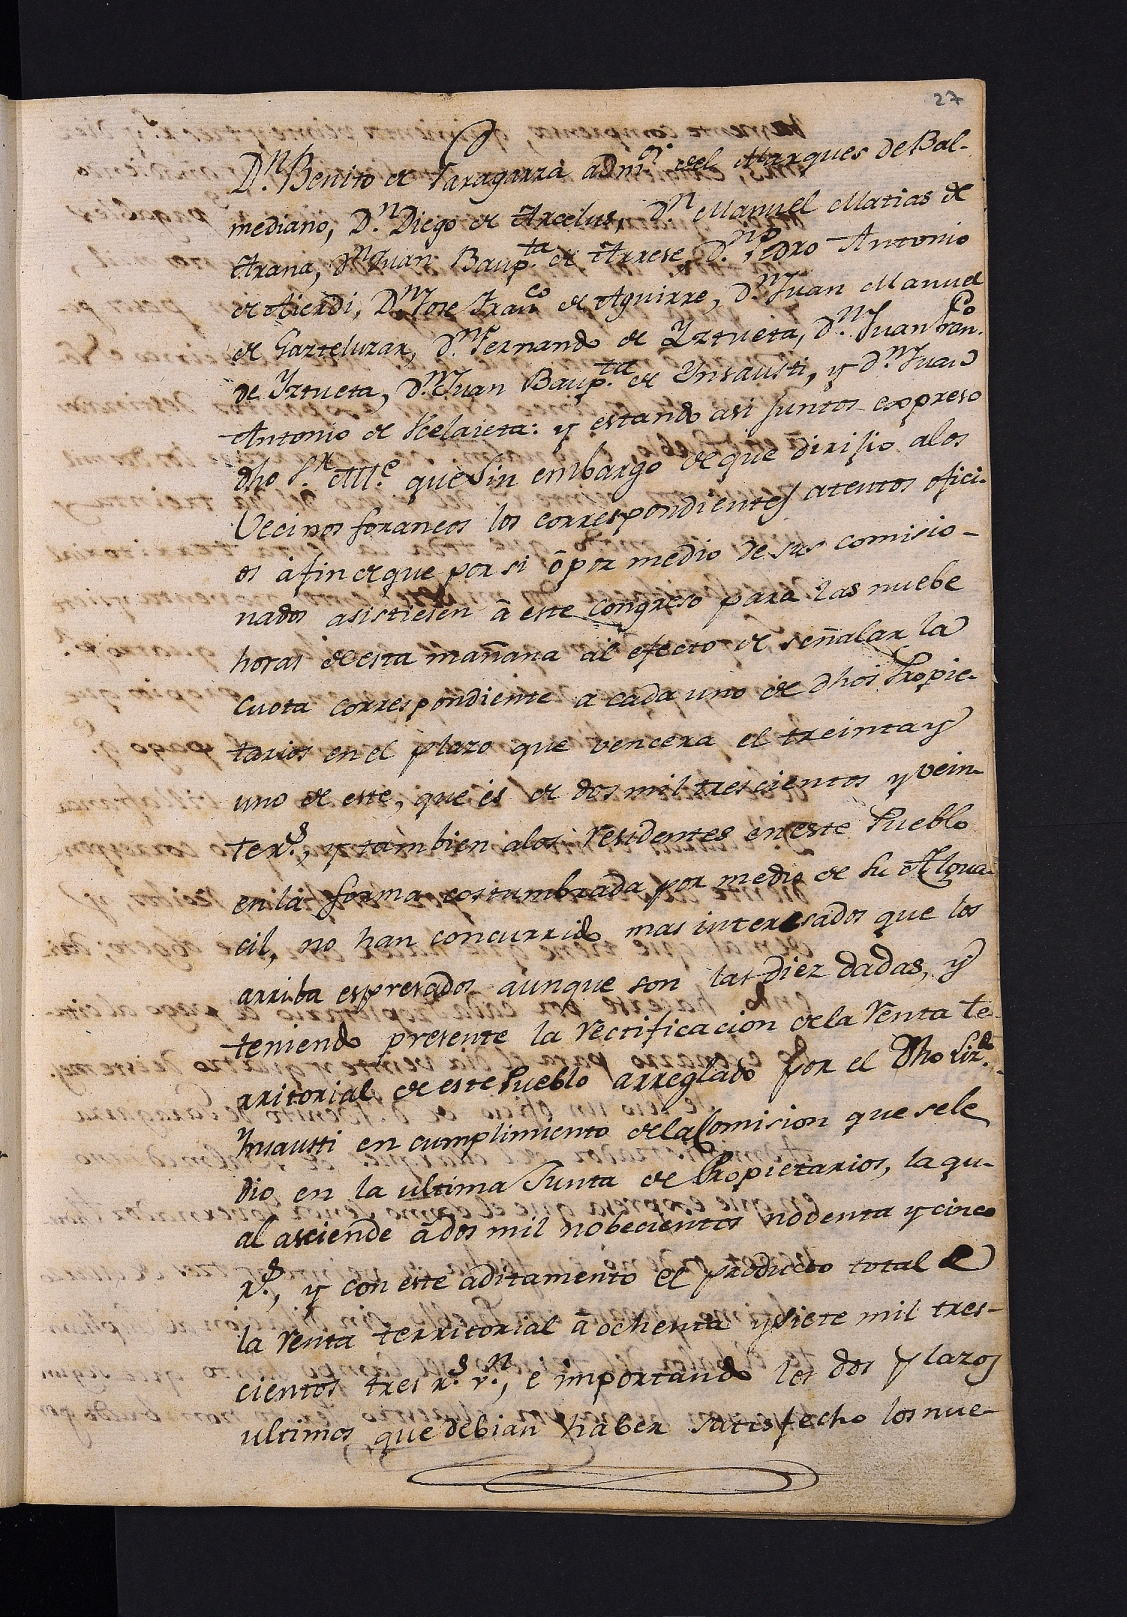 27
D.n Benito de Yaragarra adm.or del Marques de Bal-
mediano, D.n Diego de Arcelus, D.n Manuel Matias de
Arana, D.n Juan Baup.ta de Arrese, D.n Pedro Antonio
de Aierdi, D.n Jose Fran.co de Aguirre, D.n Juan Manuel
de Gartelurar, D.n Fernando de Yrtueta, D.n Juan Fran.co
de Yrtueta, D.n Juan Baup.ta de Ynsausti, y D.n Juan
Antonio de Helaieta: y estando asi juntos expreso
dho S.r All.e que sin embargo de que dirijio a los
Vecinos foraneos los correspondientes atentos ofici-
os á fin de que por si ó por medio de sus comisio-
nados asistiesen á este congreso para las nuebe
horas de esta mañana al efecto de señalar la
cuota correspondiente a cada uno de dhos Propie-
tarios en el plazo que vencera el treinta y
uno de este, que es de dos mil trescientos y vein-
te r.s, y tambien a los residentes en este Pueblo
en la forma costumbrada por medio de su Algua-
cil, no han concurrido mas interesados que los
arriba espresados aunque son las diez dadas, y
teniendo presente la rectificacion de la Renta te-
rritorial de este Pueblo arreglado por el dho
Ynsausti en cumplimiento de la Comision que se le
dio en la ultima Junta de Propietarios, la qu-
al asciende á dos mil nobecientos nobenta y cinco
r.s, y con este aditamento el producto total de
la renta territorial á ochenta y siete mil tres-
cientos tres r.s v.n, e importando los dos plazos
ultimos que debian haber satisfecho los nue-